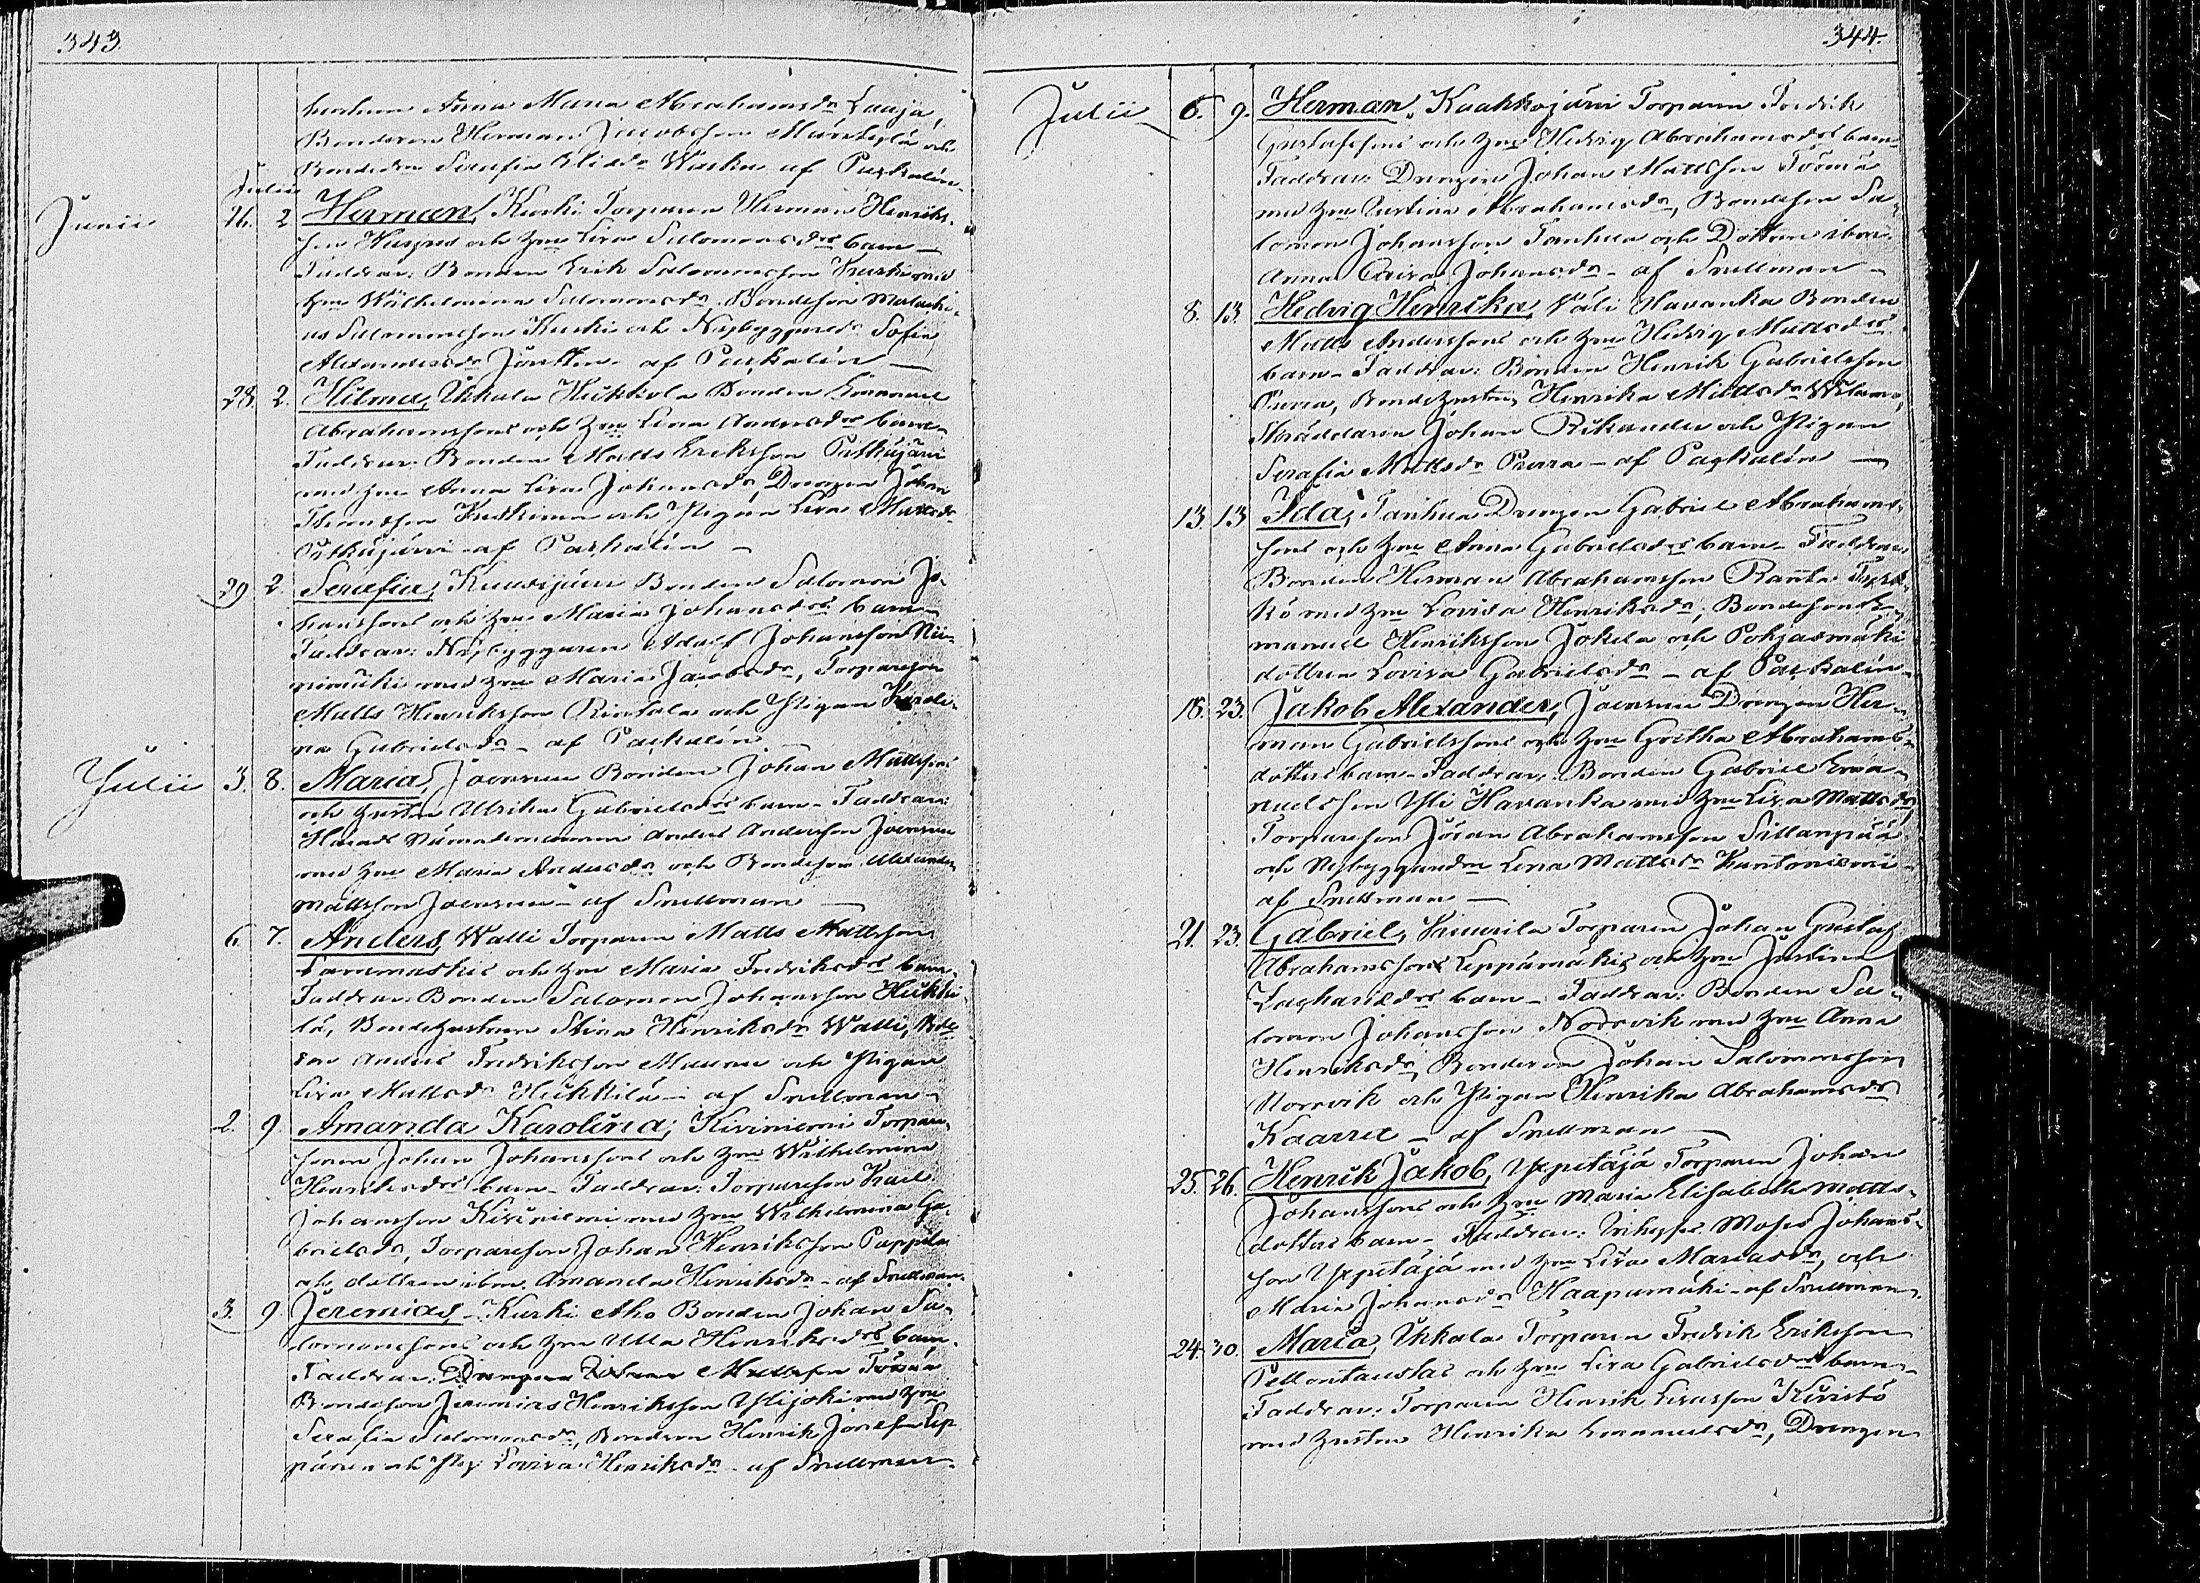 343
Anna Maria Abrahamsdr Laaja,
Bondsonen Herman Jacobsson och
Bondedrn Serafia af Paskalin
Julii
Junii 26. 2 Herman, Kurki Torparen Herman Henriks-
sons och hu Lisa Salomonsdrs barn –
Faddrar: Bonden Erik Salomonsson Kurki med
hu Wilhelmina Salomonsdr Bondeson Malaki-
as Salomonsson Kurki och Nybyggaredr Sofia
Alexandersdr af Paskalin –
28. 2. Hilma, Ukkola Heikkola Bonden Emanuel
Abrahamssons och hu Lena Andersdrs barn –
Faddrar: Bonden Matts Eriksson Pitkäjärvi
med hu Anna Lisa Johansdr, Drengen Johan
Thomsson och Pigan Lisa Mattsdr
Pitkäjärvi – af Paskalin –
29 2. Serafia, Bonden Salomon Jo-
hanssons och hu Maria Johansdrs barn –
Faddrar: Nybyggaren Adolf Johansson Nii-
nimäki med hu Maria Jacobsdr, Torpareson
Matts Henriksson Rintala och Pigan Karoli-
na Gabrielsdr – af Paskalin –
Julii 3. 8. Maria, Joensuu Bonden Johan Mattssons
och hustru Ulrika Gabrielsdrs barn – Faddrar:
Anders Andersson Joensuu
med hu Maria Andersdr och Bondeson Alexander
Mattsson Joensuu – af Snellman –
6. 7. Anders, Walli Torparen Matts Mattsson
och hu Maria Fredriksdrs barn,
Faddrar: Bonden Salomon Johansson Heikki-
lä, Bondehustrun Stina Henriksdr Walli,
Anders Fredriksson och Pigan
Lisa Mattsdr Heikkilä – af Snellman –
2. 9. Amanda Karolina, Kiviniemi Torpare-
sonen Johan Johanssons och hu Wilhelmina
Henriksdrs barn – Faddrar: Torpareson Karl
Johansson Kiviniemi med hu Wilhelmina Ga-
brielsdr, Torpareson Johan Henriksson Pappila
och dottren ibm. Amanda Henriksdr – af Snellman.
3. 9 Jeremias, – Kurki Aho Bonden Johan Sa-
lomonssons och hu Ulla Henriksdrs barn.
Faddrar: Drengen Johan Mattsson Törmä
Bondeson Jeremias Henriksson Ylijoki med hu
Serafia Salomonsdr, Bondson Henrik Josefsn Lep-
pänen och Pig: Lovisa Henriksdr – af Snellman.
344.
Julii 6. 9. Herman, Kaakkojärvi Torparen Fredrik
Gustafssons och hu Hedvig Abrahamsdrs barn –
Faddrar: Drengen Johan Mattsson Törmä
med hu Justina Abrahamsdr, Bondeson Sa-
lomon Johansson Tanhua och Dottren ibm.
Anna Caisa Johansdr – af Snellman –
8. 13. Hedvig Henrika, Väli Havanka Bonden
Matts Anderssons och hu Hedvig Mattsdrs
barn – Faddrar: Bonden Henrik Gabrielsson
Bondehustru Henrika Mattsdr
Skräddaren Johan Rikander och Pigan
Serafia Mattsdr – af Paskalin –
13 13 Ida, Tanhua Drengen Gabriel Abrahams-
sons och hu Anna Gabrielsdrs barn – Faddrar:
Bonden Herman Abrahamsson Ranta
med hu Lovisa Henriksdr, Bondeson E-
manuel Henriksson Jokela och Pohjasmäki
dottren Lovisa Gabrielsdr – af Paskalin –
18. 23. Jakob Alexander, Joensuu Drengen Her-
man Gabrielssons och hu Gretha Abrahams-
dotters barn – Faddrar: Bonden Gabriel Ema-
nuelsson Yli Havanka med hu Lisa Mattsdr,
Torpareson Johan Abrahamsson Sillanpää
och Nybyggaredr Lena Mattsdr Kantoniemi –
af Snellman –
21. 23. Gabriel, Torparen Johan Gustaf
Abrahamssons Leppämäki, och hu Justina
Zachariasdrs barn – Faddrar: Bonden Sa-
lomon Johansson Norrvik med hu Anna
Henriksdr, Bondeson Johan Salomonsson
Norrvik och Pigan Henrika Abrahamsdr
– af Snellman –
25. 26. Henrik Jakob, Yxpetäjä Torparen Johan
Johanssons och hu Maria Elisabeth Matts-
dotters barn – Faddrar: Inhyses Moses Johans-
son Yxpetäjä med hu Lisa Mariasdr, och
Maria Johansdr Haapamäki – af Snellman.
24. 30. Maria, Ukkola Torparen Fredrik Eriksson
Pellontaustas och hu Lisa Gabrielsdrs barn –
Faddrar: Torparen Henrik Kivistö
med hustru Henrika Emanuelsdr, Drengen